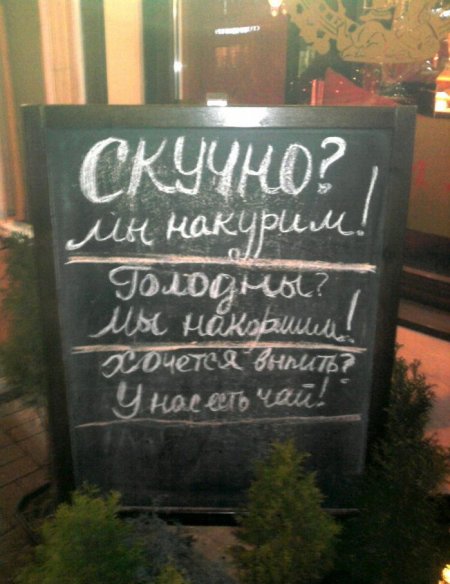 СКУЧНО?
Мы накурим!
Голодны?
Мы накормим!
Хочется выпить?
У нас есть чай!